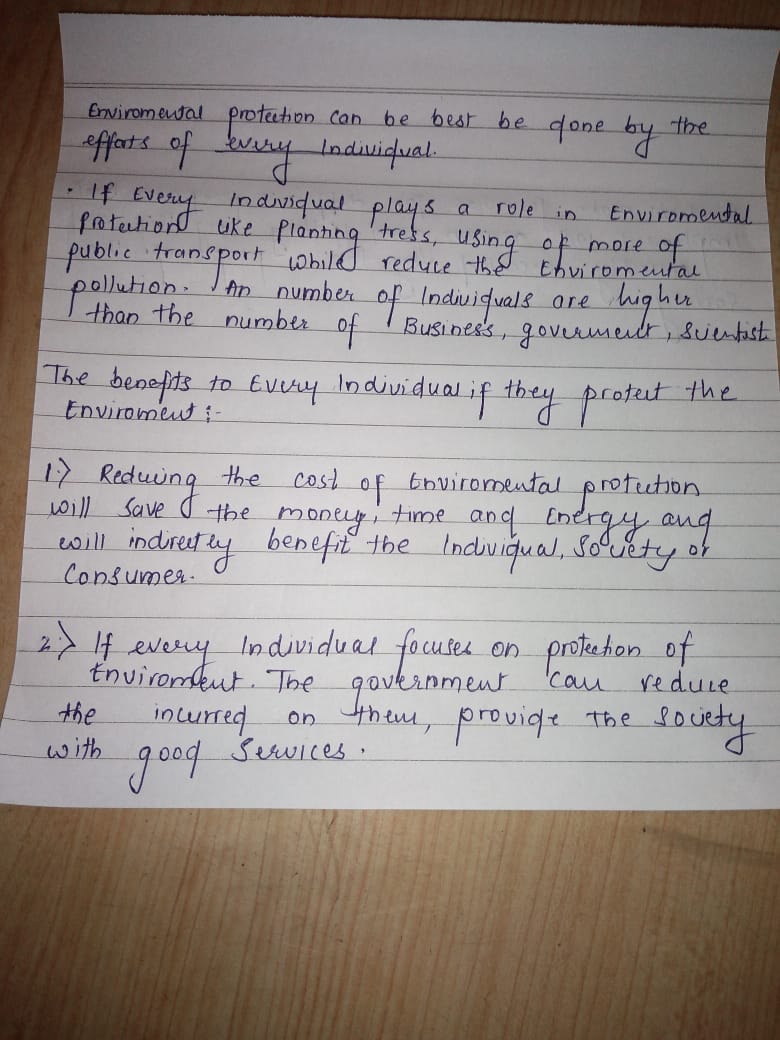 Enviromental protection can be best be done by the
efforts of every Individual.
· If Every individual plays a role in Enviromental
Protection like Planting tress, using of more of
public transport while reduce the Enviromental
pollution. An number of Individuals are higher
than the number of Business, goverment, Scientist
The benefits to Every Individual if they protect the
Enviroment :-
1.) Reducing the cost of Enviromental protection
will save the money, time and Energy and
will indirectly benefit the Individual, Society or
Consumer.
2.) If every Individual focuses on protection of
Enviroment. The government can reduce
the incurred on them, provide the Society
with good Services.